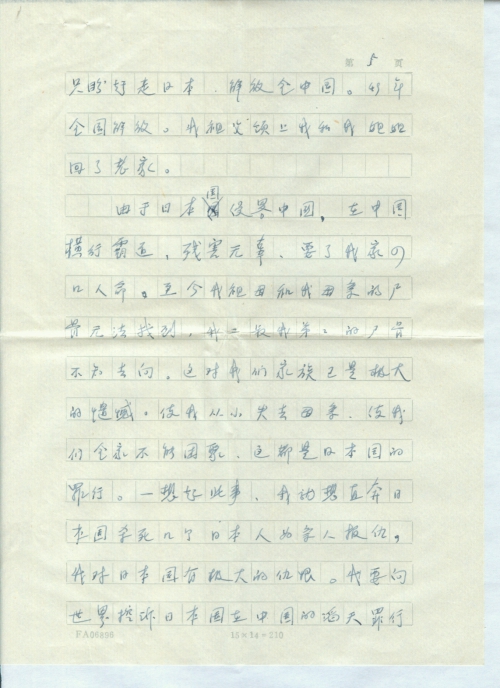 第 5 页
只盼打走日本、解放全中国。45年
全国解放。我祖父领上我和我姐姐
回了老家。
由于日本国侵略中国，在中国
横行霸道，残害无辜、要了我家四
口人命。至今我祖母和我母亲的尸
骨无法找到，我二叔我弟弟的尸骨
不知去向。这对我们家族已是极大
的遗憾。使我从小失去母亲、使我
们全家不能团聚、这都是日本国的
罪行。一想好些事、我就想直奔日
本国杀死几个日本人为家人报仇，
我对日本国有极大的仇恨。我要向
世界控诉日本国在中国的滔天罪行
FA06896
15×14=210